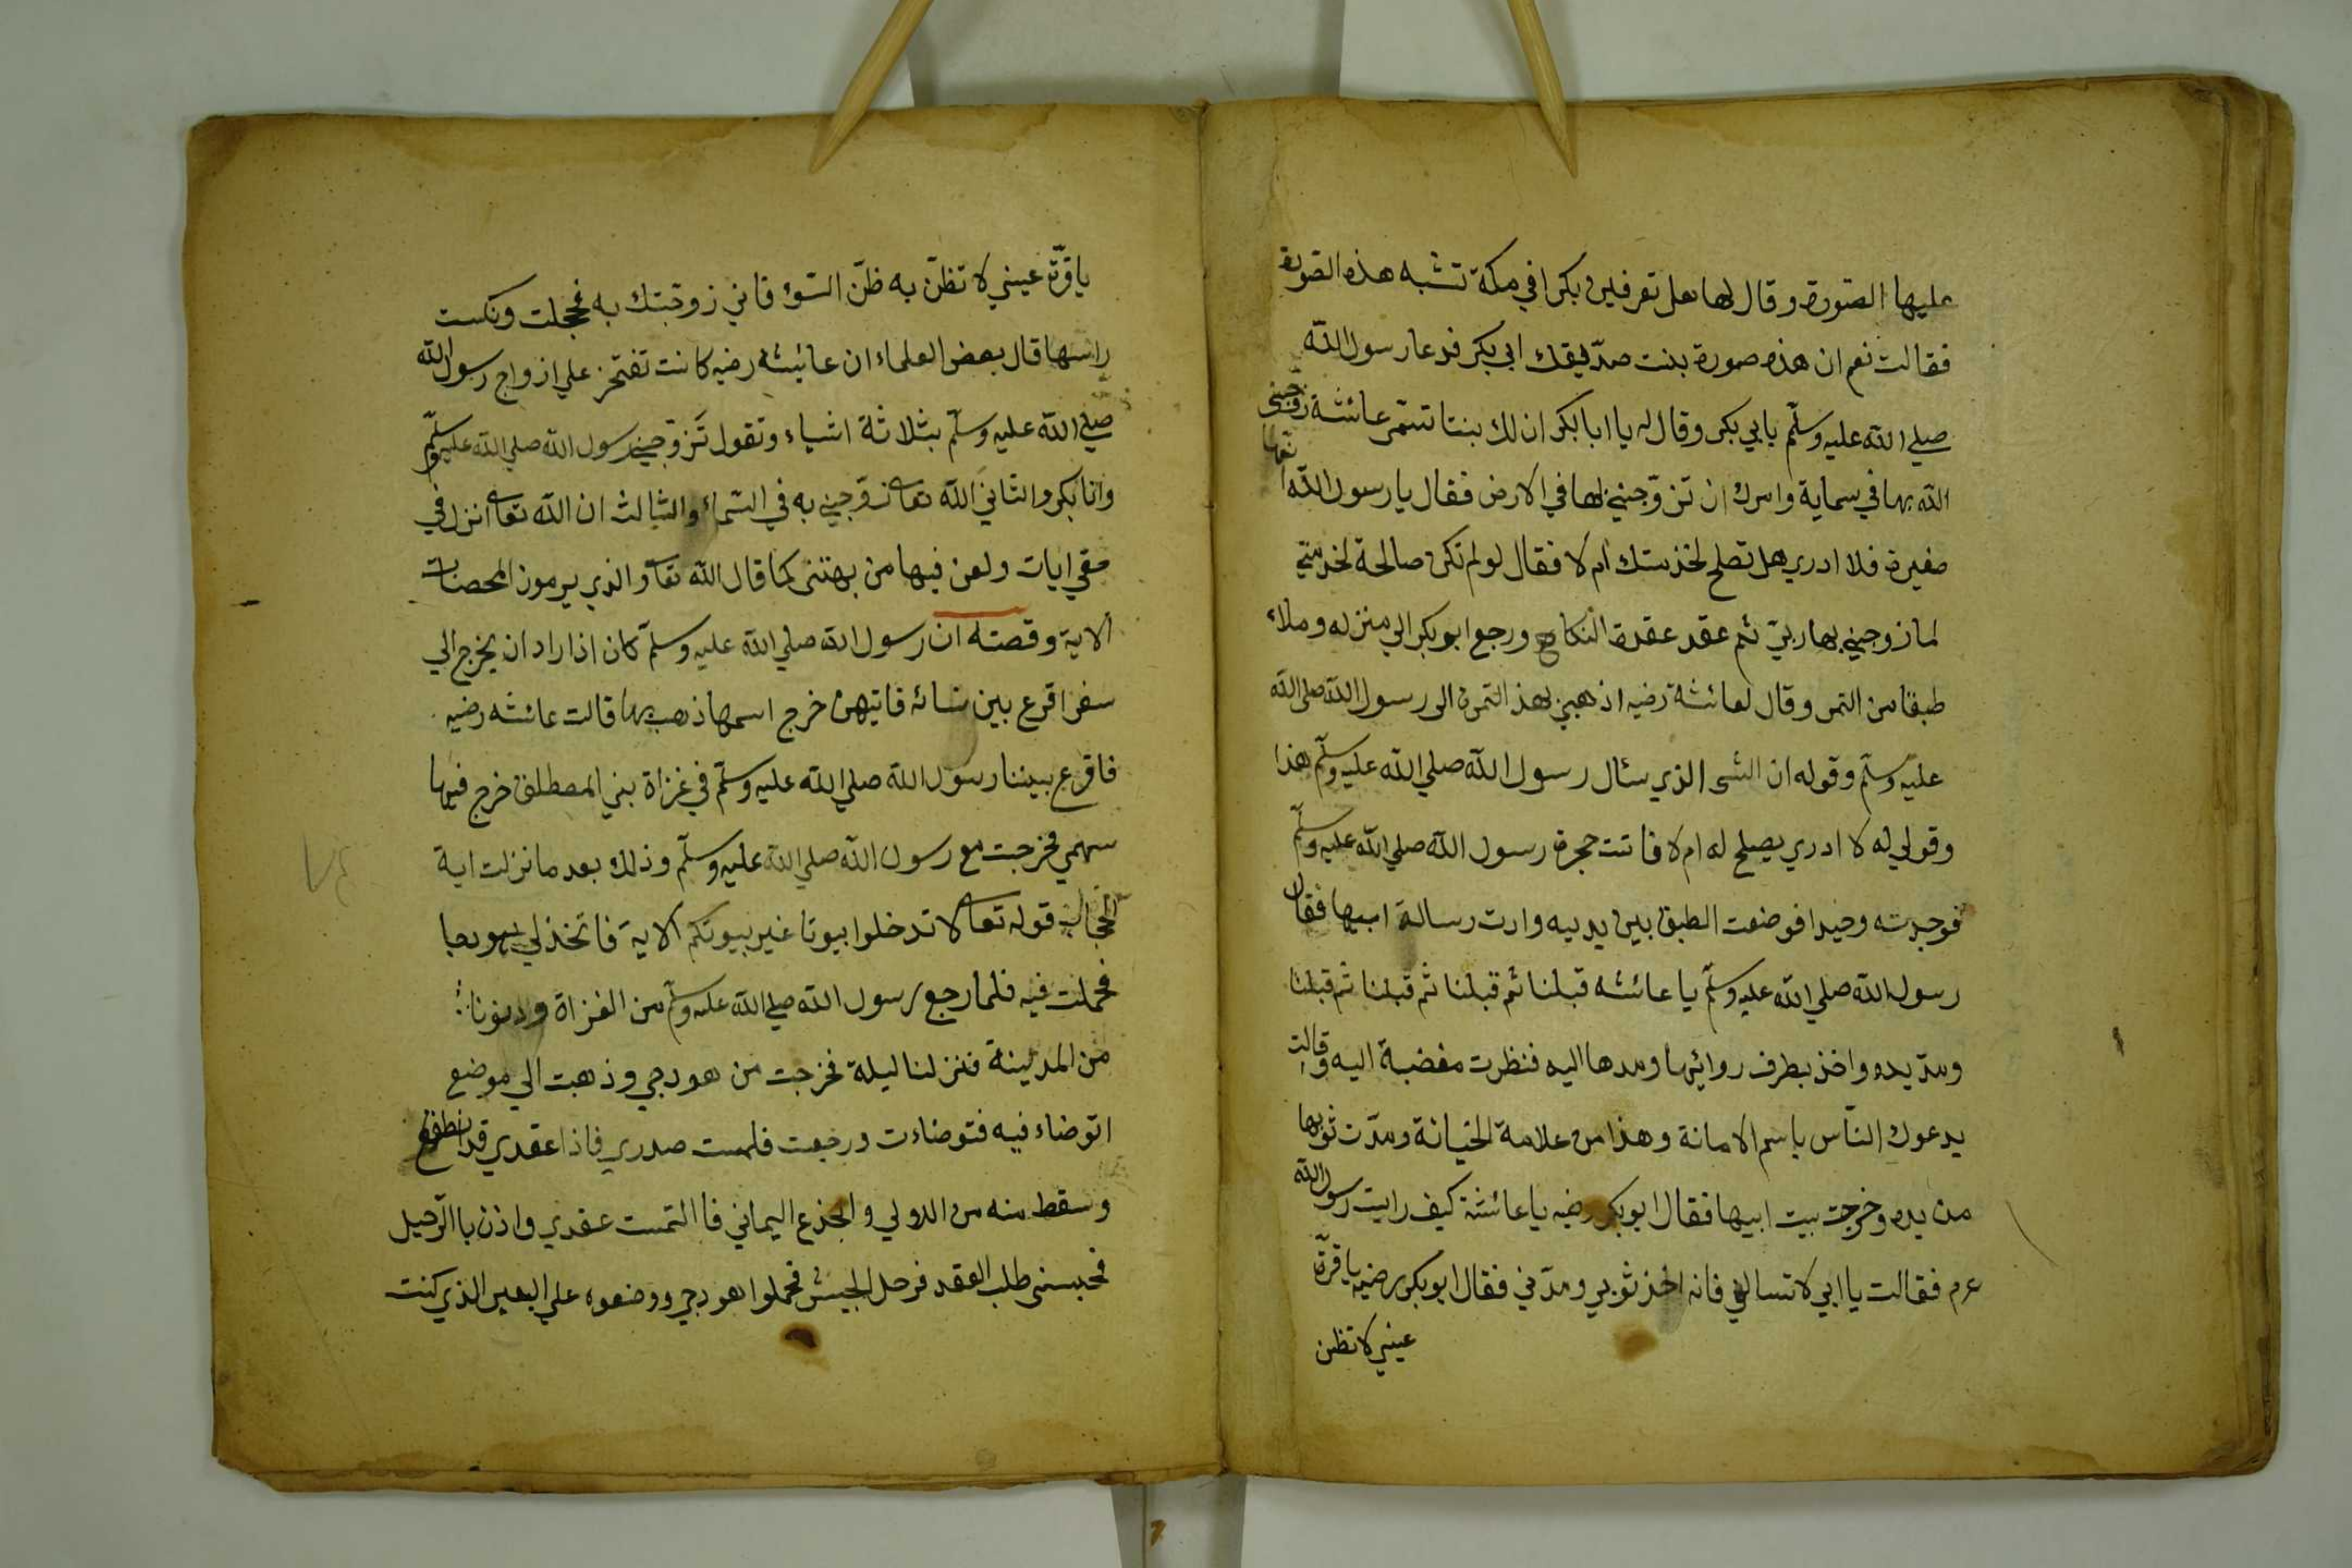 عليها الصورة وقال لها هل تعرفين بكرا في مكة تشبه هذه الصورة
فقالت نعم ان هذه صورة بنت صديقك ابي بكر فدعا رسول الله
صلي الله عليه وسلم بابي بكر وقال له يا ابا بكر ان لك بنتا تسمى عائشة زوجني
الله بها في سمايه وامرك ان تزوجني لها في الارض فقال يا رسول الله انها
صغيرة فلا ادري هل تصلح لخدمتك ام لا فقال لو لم تكن صالحة لخدمتي
لما زوجني بها ربي ثم عقد عقدة النكاح ورجع ابو بكر الي منزله وملاء
طبقا من التمر وقال لعائشة رضيه اذهبي بهذ التمرة الى رسول الله صلي الله
عليه وسلم وقوله ان الشى الذي سئال رسول الله صلي الله عليه وسلم هذا
وقولي له لا ادري يصلح له ام لا فاتت حجرة رسول الله صلي الله عليه وسلم
فوجدته وحيدا فوضعت الطبق بين يديه وادت رسالة ابيها فقال
رسول الله صلي الله عليه وسلم يا عائشه قبلنا ثم قبلنا ثم قبلنا ثم قبلنا
ومد يده واخذ بطرف روائيها ومدها اليه فنظرت مغضبة اليه وقالت
يدعوك الناس باسم الامانة وهذا من علامة الخيانة ومدت ثوبها
من يده وخرجت بيت ابيها فقال ابو بكر رضيه يا عائشة كيف رايت رسول الله
عرم فقالت يا ابي لا تسالني فانه اخذ ثوبي ومدني فقال ابو بكر رضيه يا قرة
عيني لا تظن
يا قرة عيني لا تظن به ظن السوء فاني زوجتك به فخجلت ونكست
راسها قال بعض العلماء ان عائيشه رضيه كانت تفتخر علي ازواج رسول الله
صلي الله عليه وسلم بثلاثة اشياء وتقول تزوجني رسول الله صلي الله عليه وسلم
وانا بكر والثاني الله تعا زوجني به في السماء والثالث ان الله تعا انزل في
حقي ايات ولعن فيها من بهتنى كما قال الله تعا والذي يرمون المحصنات
الاية وقصته ان رسول الله صلي الله عليه وسلم كان اذا اراد ان يخرج الي
سفر اقرع بين نسائه فايتهن خرج اسمها ذهب بها قالت عائشه رضيه
فاقرع بيننا رسول الله صلي الله عليه وسلم في غزاة بني المصطلق خرج فيها
سهمي فخرجت مع رسول الله صلي الله عليه وسلم وذلك بعد ما نزلت اية
الحجاب قوله تعا لا تدخلوا بيوتا غير بيوتكم الاية فاتخذ لي هودجا
فحملت فيه فلما رجع رسول الله صلي الله عليه وسلم من الغزاة ودنونا
من المدينة فنزلنا ليلة فخرجت من هودجي وذهبت الي موضع
اتوضاء فيه فتوضاءت ورجعت فلمست صدري فاذا عقدي قد انطقع
وسقط منه من اللولي والجذع اليماني فا التمست عقدي واذن باالرحيل
فحبسنى طلب العقد فرحل الجيش فحملوا هودجي ووضعوه علي البعير الذي كنت